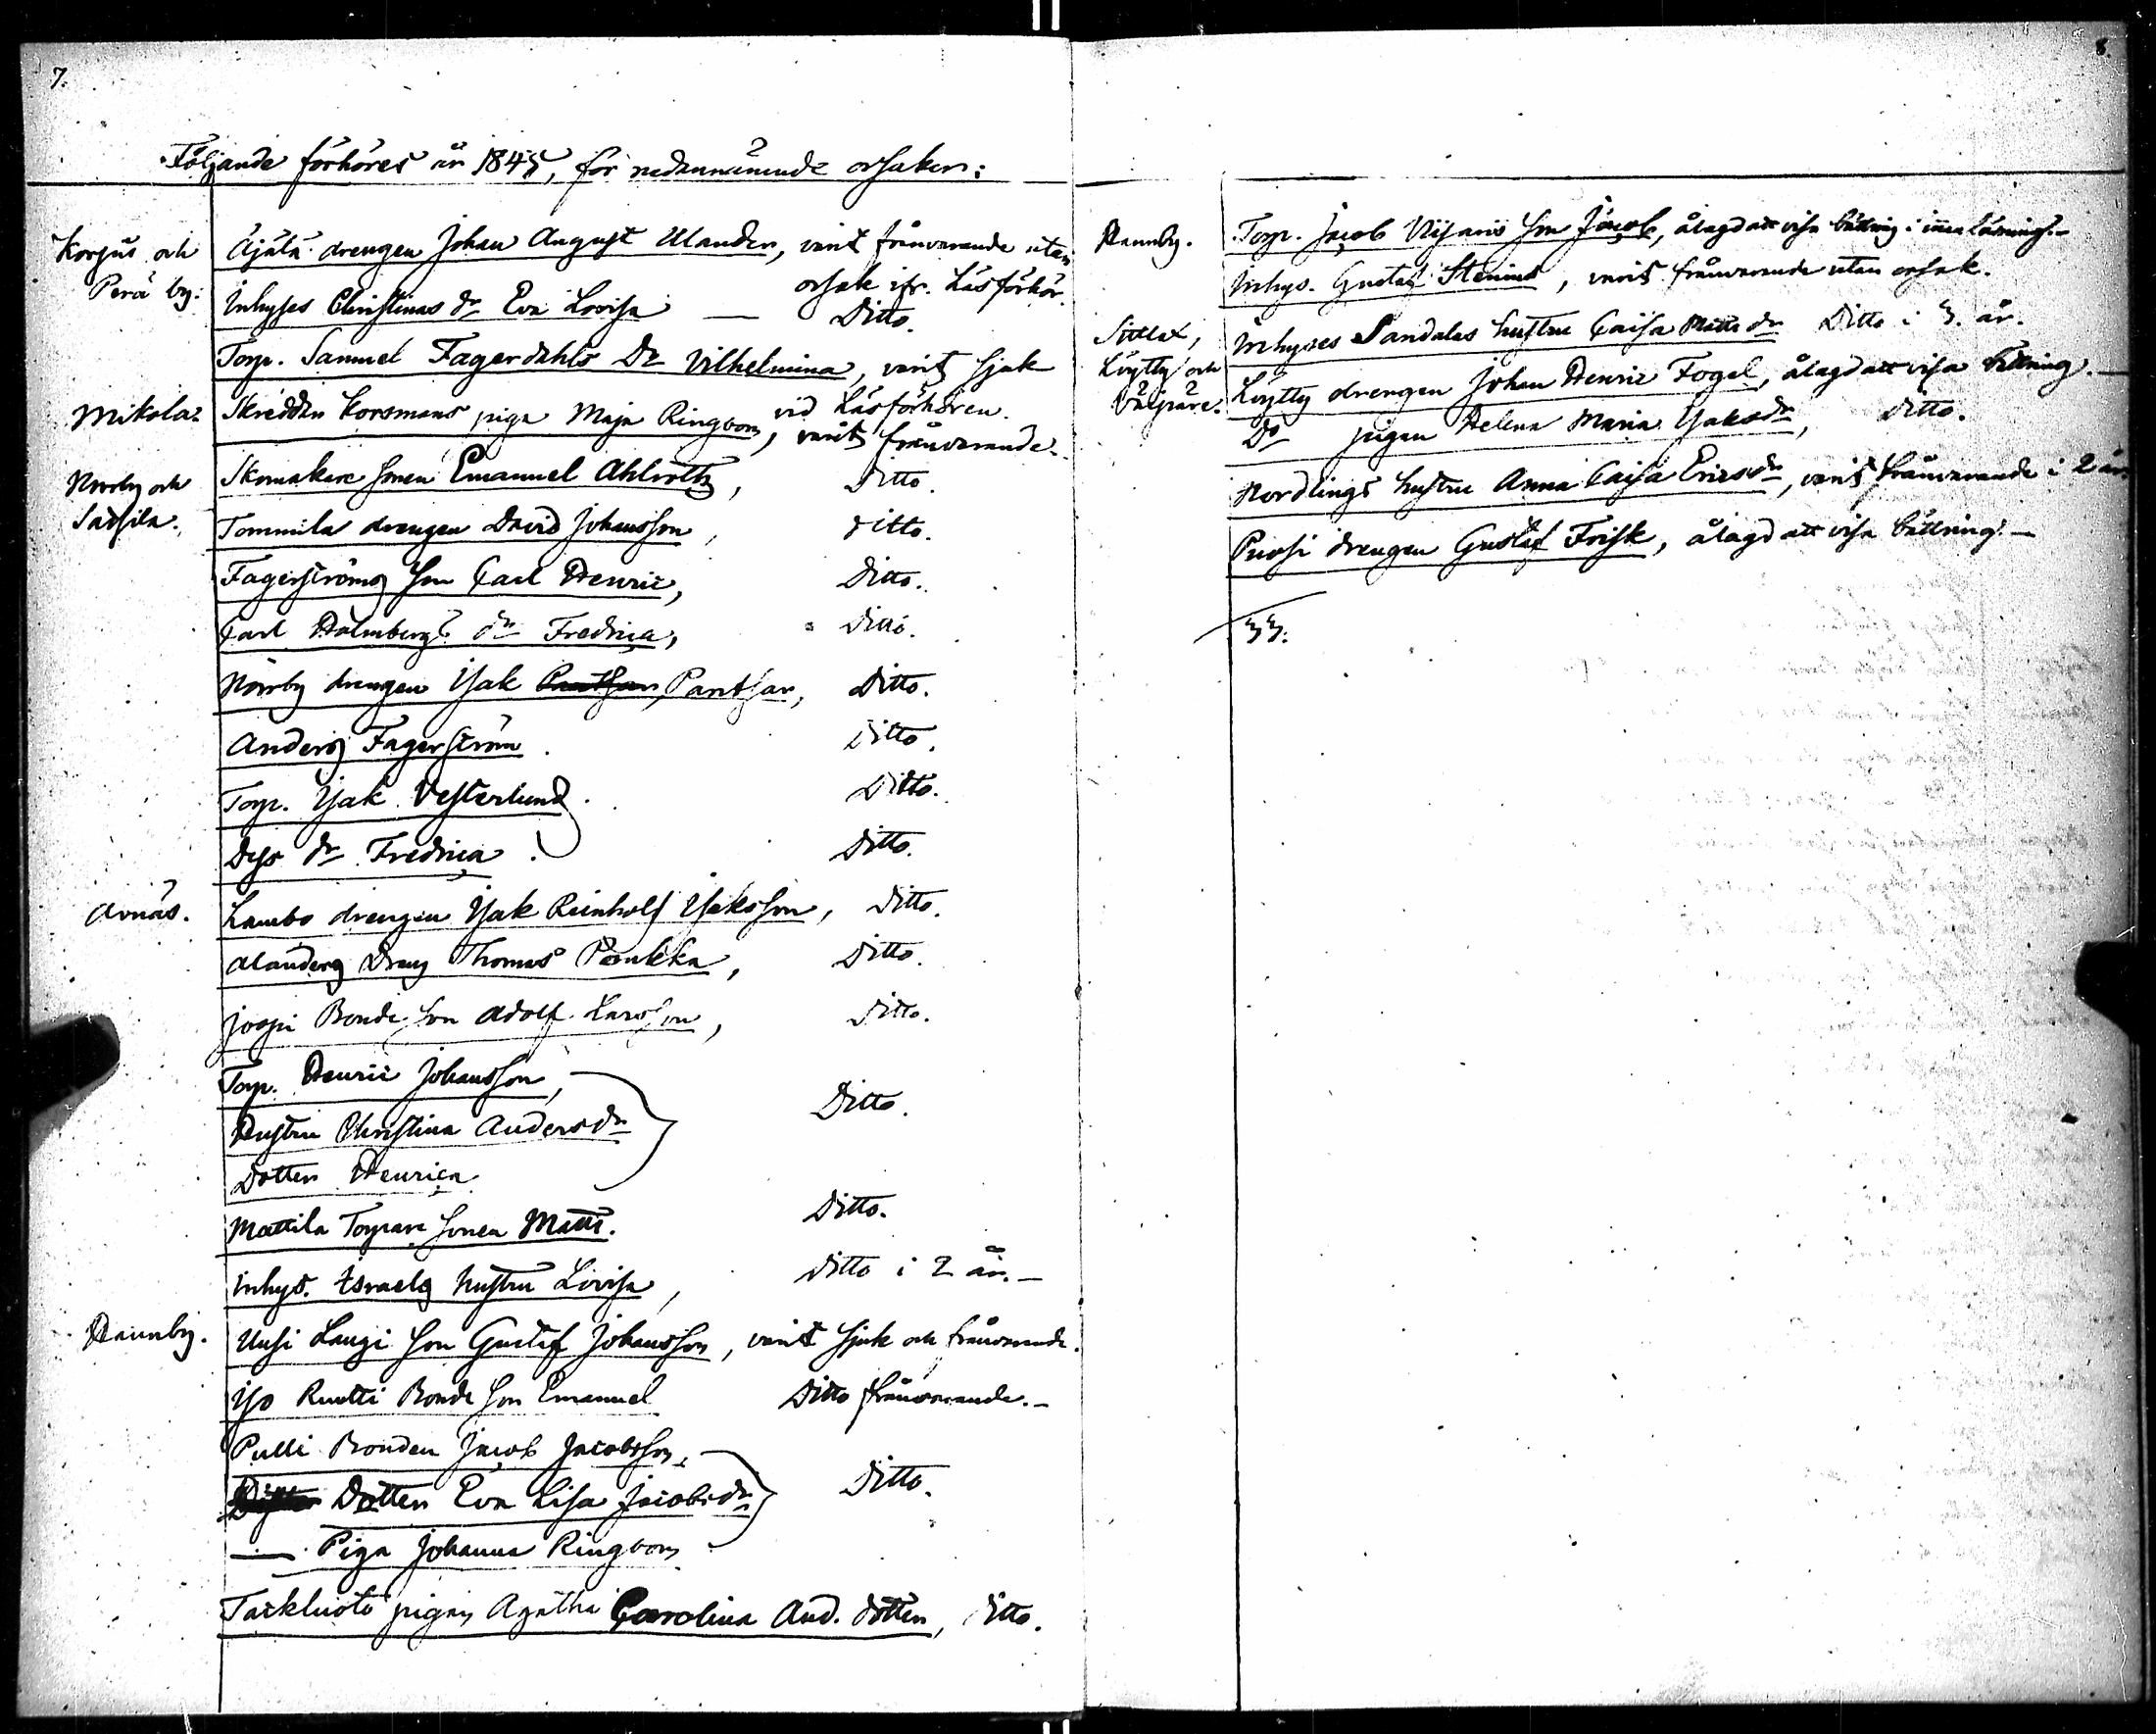 7.
Följande förhöres år 1845, för nedannämnde orsaker:
Korpis och
Perä by:
Äjälä drengen Johan August Ulander, varit frånvarande utan
orsak ifr. Läsförhör.
Inhyses Christinas dr Eva Lovisa — Ditto.
Torp. Samuel Fagerdahls Dr Vilhelmina, varit sjuk
vid Läsförhören.
Mikola:
Skreddn Korsmans piga Maja Ringbom, varit frånvarande.
Norrby och
Skomakare sonen Emanuel Ahlroth, Ditto.
Tommila drengen David Johansson, ditto.
Fagerströms son Carl Henric, Ditto.
Carl Holmbergs dr Fredrica, Ditto.
Norrby drengen Isak Pantsar, Pantsar, Ditto.
Anders Fagerström. Ditto.
Torp. Isak Vesterlund. Ditto.
Dess dr Fredrica. Ditto.
Arnäs.
Lambo drengen Isak Reinhold Isaksson, Ditto.
Alanders Dreng Thomas Paukka, Ditto.
Joopi Bonde son Adolf Larsson, Ditto.
Torp. Henric Johansson,
Hustru Christina Andersdr Ditto.
Dotter Henrica
Mattila Torpare sonen Matts. Ditto.
Inhys. Israels hustru Lovisa, ditto i 2 år.—
Hannby.
Uusi Laugi Son Gustaf Johansson, varit sjuk och frånvarande.
Iso Ruutti Bonde son Emanuel Ditto frånvarande.—
Pulli Bonden Jacob Jacobsson,
Dotter Eva Lisa Jacobsdr Ditto.
— Piga Johanna Ringbom
Tackluoto pigan Agatha Carolina And. dotter, Ditto.
8.
Hannby.
Torp. Jacob Viisaris Son Jacob, ålagd att visa bättring i innanläsning.—
Inhys. Gustaf Stenius, varit frånvarande utan orsak.
Sittlax,
Löytty och
Inhyses Sandalas hustru Caisa Matts dr Ditto i 3. år.
Löytty drengen Johan Henric Fogel, ålagd att visa bättring.—
Do pigan Helena Maria Isaksdr, ditto.
Nordlings hustru Anna Caisa Ericsdr, varit frånvarande i 2 år.
Puosi drengen Gustaf Frisk, ålagd att visa bättring.—
33.